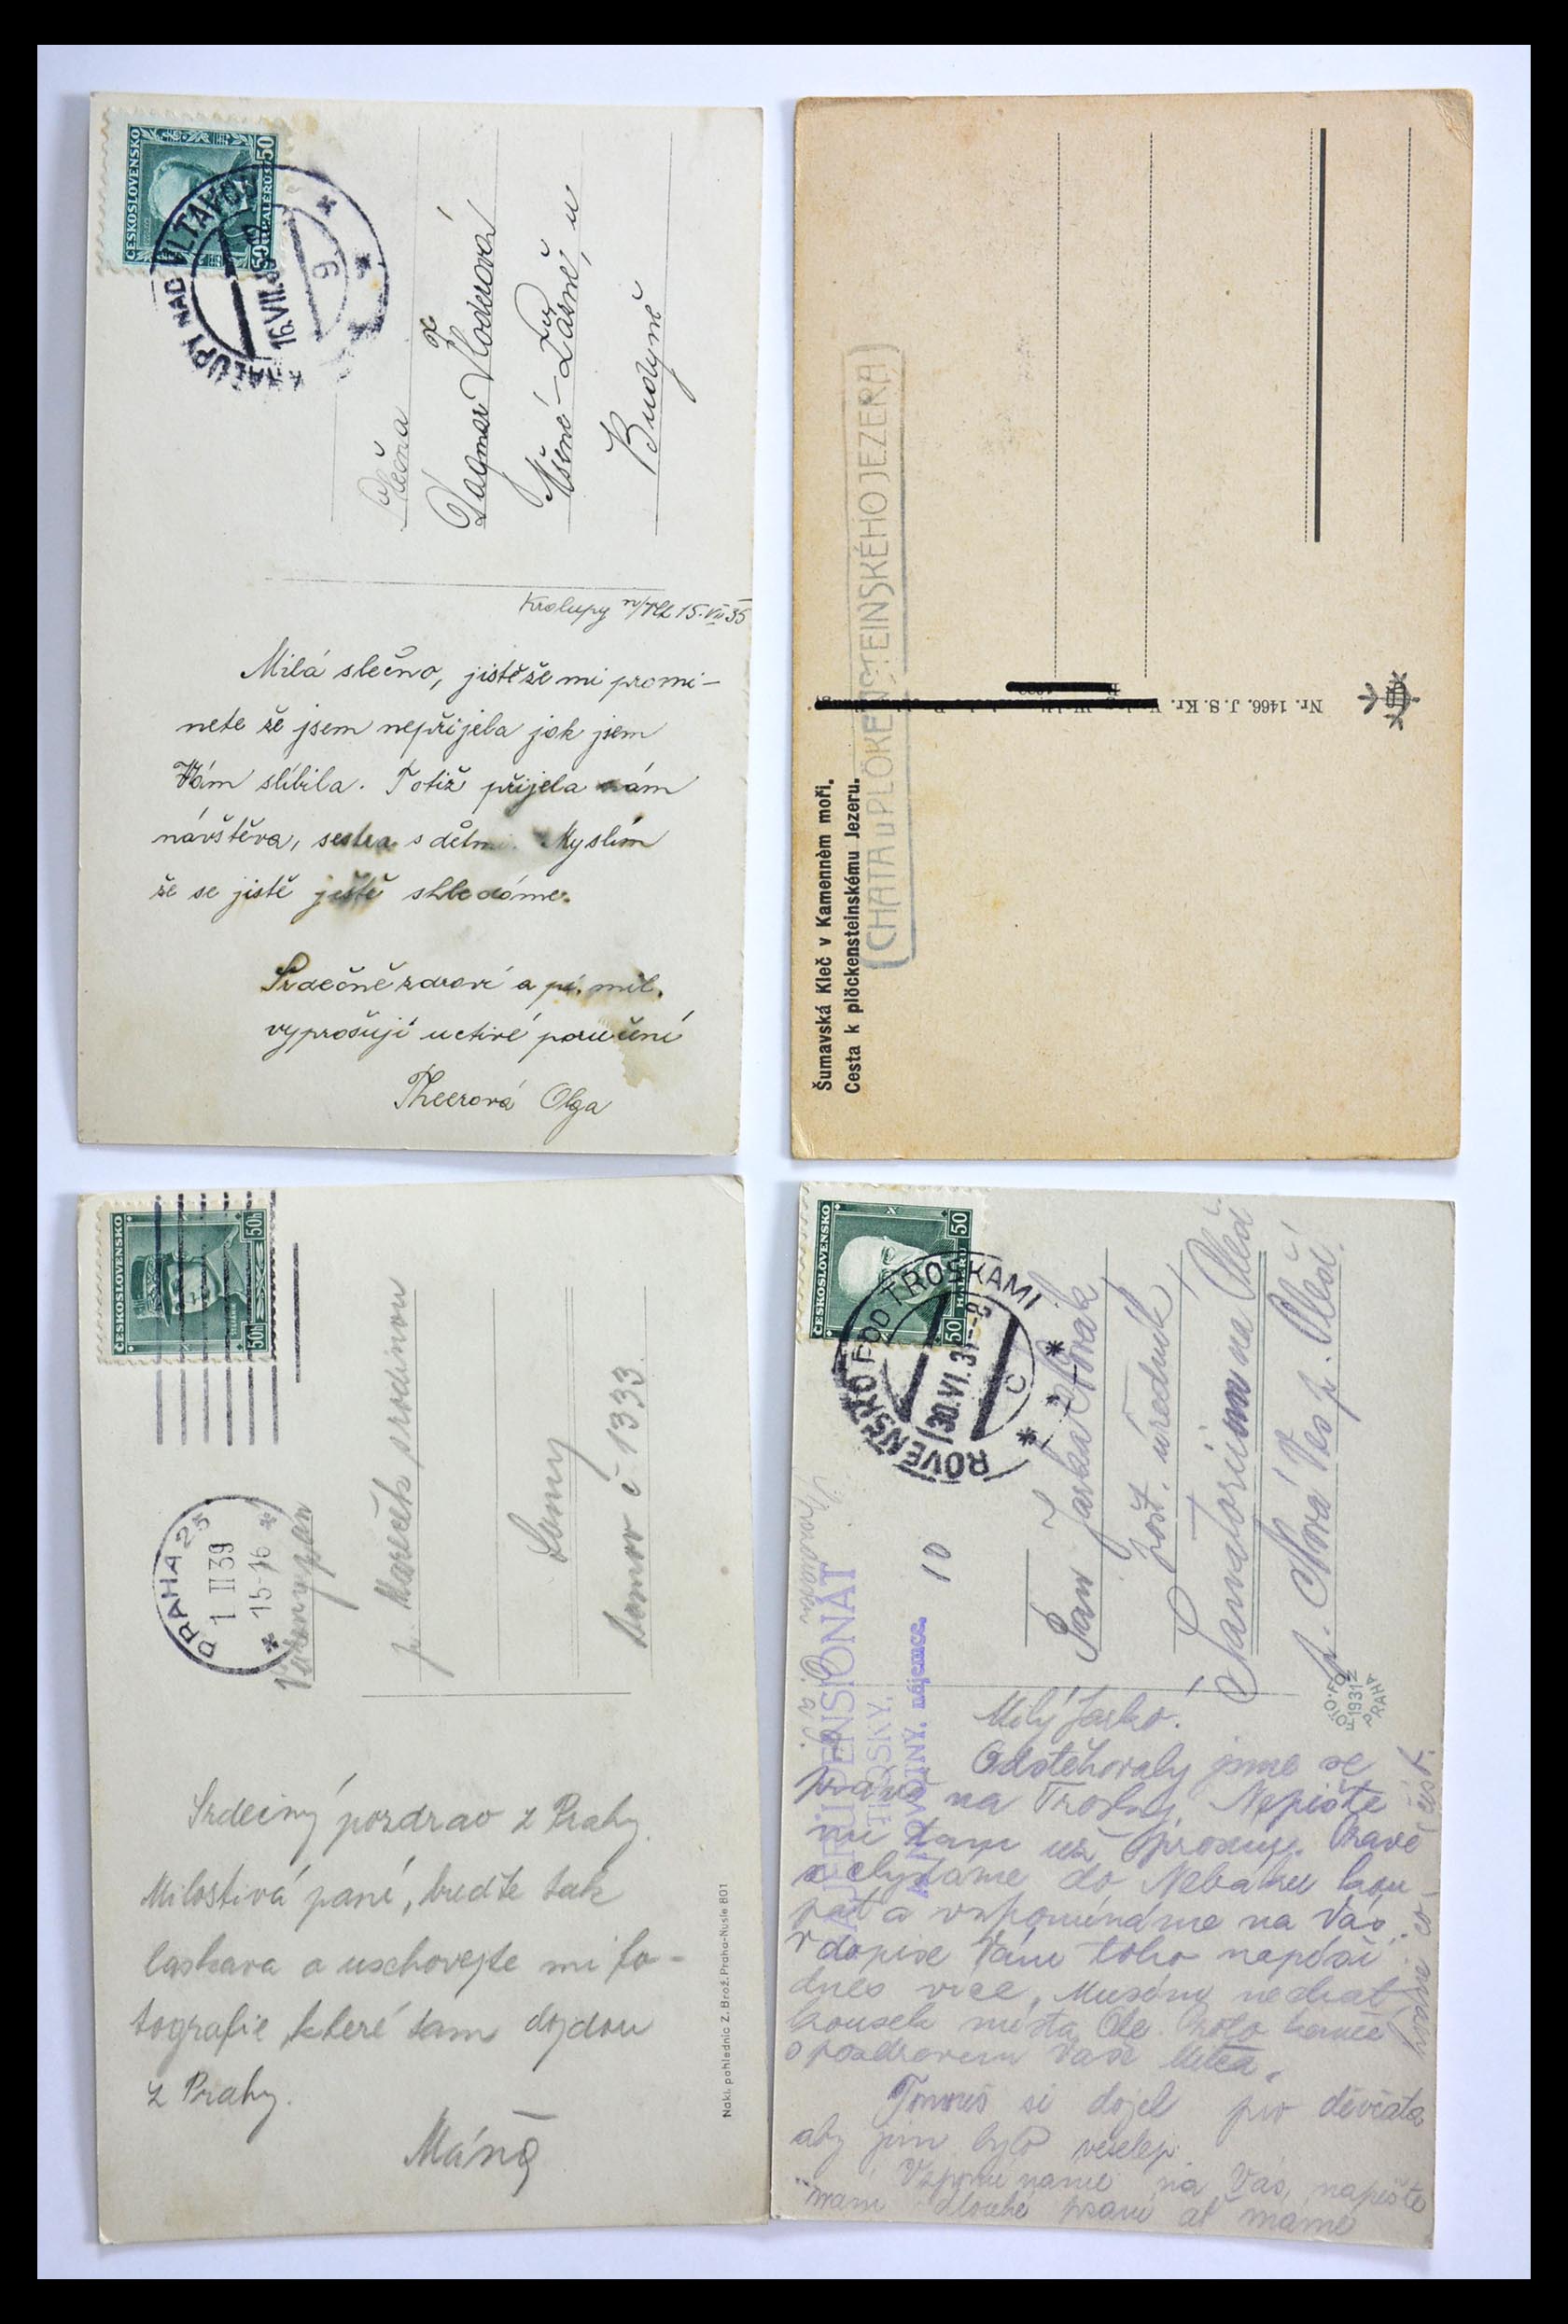 ČESKOSLOVENSKO
50 HALÉŘŮ 50
KRALUPY NAD VLTAVOU
16.VII.
9
Slečna
Dagmar Vloderová
Mšené-Lázně, u
Budyně
Kralupy n/Vlt 15.VII 35
Milá slečno, jistě že mi promi-
nete že jsem nepřijela jak jsem
Vám slíbila. Totiž přijela nám
návštěva, sestra s dětmi. Myslím
že se jistě ještě shledáme.
Srdečně zdraví a pí. mil.
vyprošuji uctivé poručení
Theerová Olga
Šumavská Kleč v Kamenném moři.
Cesta k plöckensteinskému Jezeru.
CHATA u PLÖKENSTEINSKÉHO JEZERA
Nr. 1466. J. S. Kr.
ČESKOSLOVENSKO
50h 50h
PRAHA 25
1 II 39
15-16
Vážený pán
p. Mareček s rodinou
Louny
Domov č 1333.
Srdečný pozdrav z Prahy.
Milostivá paní, buďte tak
laskava a uschovejte mi fo-
tografie které tam dojdou
z Prahy.
Máňa
Nakl. pohlednic Z. Brož. Praha-Nusle 801
ČESKOSLOVENSKO
50 HALÉŘŮ 50
ROVENSKO POD TROSKAMI
30.VI.31
C
PENSIONÁT
TROSKY,
NOVOTNÝ, nájemce.
10
Pan Jarka Novák
pošt. úředník
Sanatorium na Pleši
p. Nová Ves p. Pleší.
FOTO-FO
1931
PRAHA
Milý Jarko!
Odstěhovaly jsme se
na Trosky. Nepište
mi tam už prosím. Právě
se chystáme do Nebáku kou
pat a vzpomínáme na Vás.
V dopise Vám toho napíši
dnes více. Musíme nechat
kousek místa
s pozdravem Vaše
Tomeš si dojel pro děvčata
aby jim bylo veselej.
Vzpomínáme na Vás, napište
nám dlouhé psaní ať máme
číst.